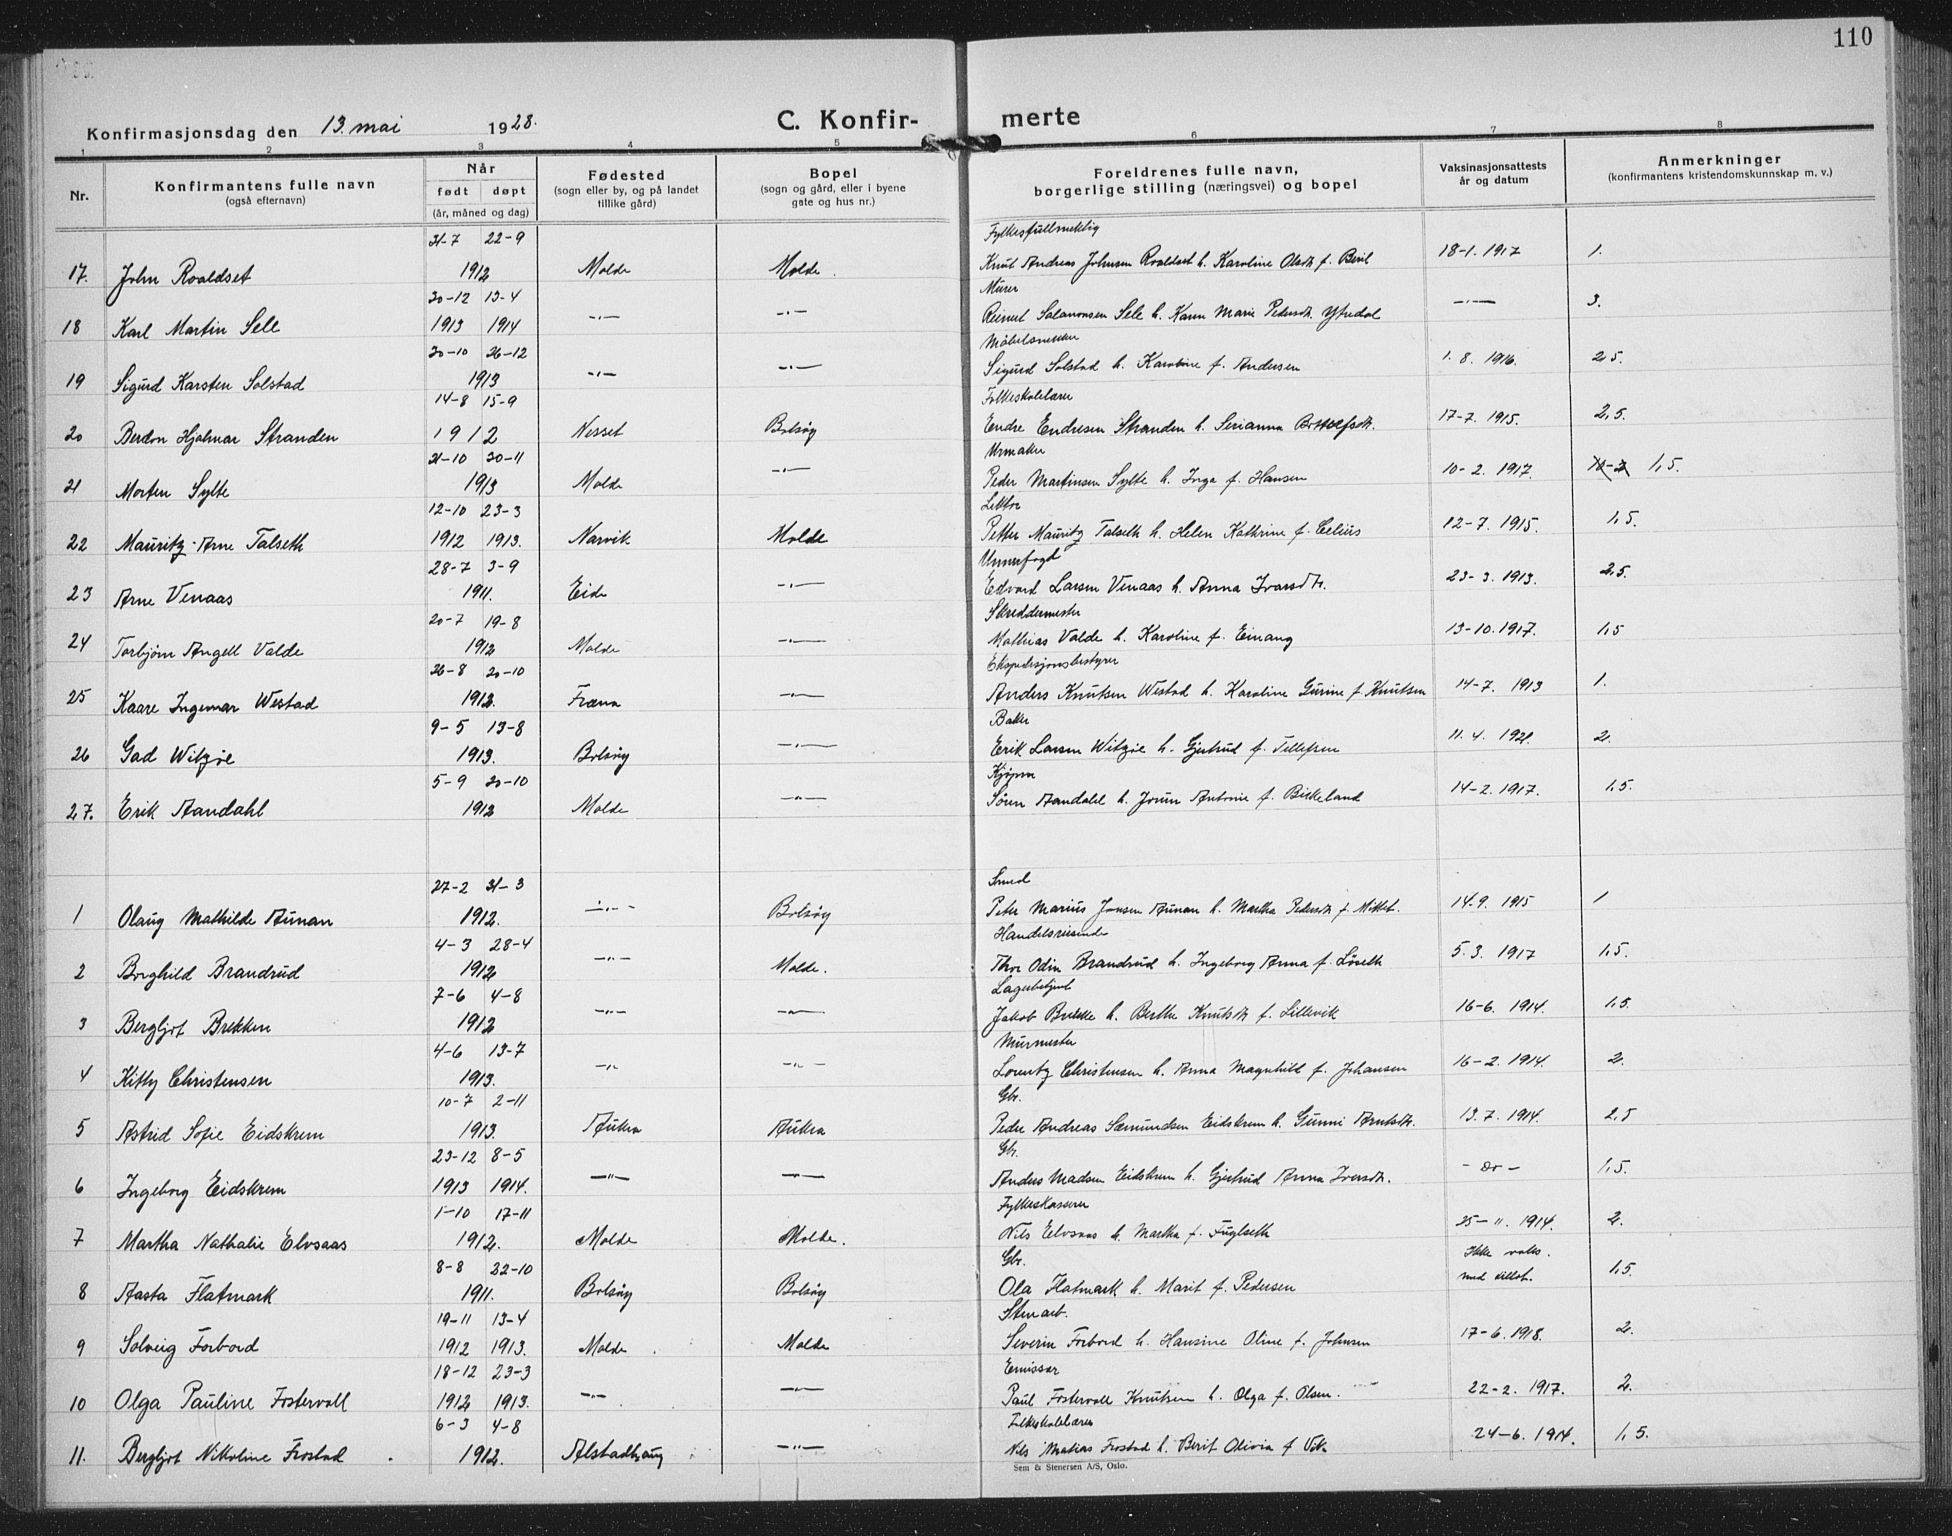 110
Konfirmasjonsdag den 13. mai 1928.
C. Konfir- merte
1 2 3 4 5 6 7 8
Nr. Konfirmantens fulle navn (også efternavn) Når født døpt (år, måned og dag) Fødested (sogn eller by, og på landet tillike gård) Bopel (sogn og gård, eller i byene gate og hus nr.) Foreldrenes fulle navn, borgerlige stilling (næringsvei) og bopel Vaksinasjonsattests år og datum Anmerkninger (konfirmantens kristendomskunnskap m. v.)
31-7 22-9 Fylkesfullmektig
17. John Roaldset 1912 Molde Molde. Knut Andreas Johnsen Roaldset h. Karoline Olsdt. f. Beril 18-1. 1917 1.
30-12 13-4 Murer
18 Karl Martin Sele 1913 1914 -"- -"- Reinert Salamonsen Sele h. Karen Marie Pedersdt. Ytredal -"- 3.
30-10 26-12 Möbelsnekker
19 Sigurd Karsten Solstad 1913 -"- -"- Sigurd Solstad h. Karoline f. Andersen 1. 8. 1916. 2,5.
14-8 15-9 Folkeskolelærer
20 Berdon Hjalmar Stranden 1912 Nesset Bolsøy Endre Endresen Stranden h. Serianna Bottolfsdt. 17-7. 1915. 2,5.
21-10 30-11 Urmaker
21 Morten Sylte 1913 Molde -"- Peder Martinsen Sylte h. Inga f. Hansen 10-2. 1917. 1,5.
12-10 23-3 Lektor
22 Mauritz Arne Talseth 1912 1913. Narvik Molde Petter Mauritz Talseth h. Helen Kathrine f. Celius 12-7. 1915. 1,5.
28-7 3-9 Unnerfogd
23 Arne Venaas 1911. Eide -"- Edvard Larsen Venaas h. Anna Ivarsdt. 23-3. 1913. 2,5.
20-7 19-8 Skreddermester
24 Torbjørn Angell Valde 1912 Molde -"- Mathias Valde h. Karoline f. Einang 13-10. 1917. 1,5
26-8 20-10 Ekspedisjonsbestyrer
25 Kaare Ingemar Westad 1912. Fræna -"- Anders Knutsen Westad h. Karoline Gurine f. Knutsen 14-7. 1913 1.
9-5 13-8 Baker
26 Gad Witzøe 1913. Bolsøy -"- Erik Larsen Witzøe h. Gjertrud f. Tellefsen 11. 4. 1921. 2.
5-9 20-10 Kjøpm
27. Erik Aandahl 1912 Molde -"- Sören Aandahl h. Jorun Antonie f. Birkeland 14-2. 1917. 1,5.
27-2 31-3 Smed
1 Olaug Mathilde Aunan 1912. -"- Bolsøy Peter Marius Jonsen Aunan h. Martha Pedersdt. f. Mittet. 14-9. 1915 1
4-3 28-4 Handelsreisende
2 Borghild Brandrud 1912 -"- Molde. Thor Odin Brandrud h. Ingeborg Anna f. Löseth 5. 3. 1917 1,5.
7-6 4-8 Lagerbetjent
3 Bergljot Brekken 1912 -"- -"- Jakob Brekke h. Berthe Knutsdt. f. Lillevik 16-6. 1914. 1,5.
4-6 13-7 Murmester
4 Kitty Christensen 1913. -"- -"- Lorentz Christensen h. Anna Magnhild f. Johansen 16-2. 1914. 2.
10-7 2-11 Gbr.
5 Astrid Sofie Eidskrem 1913. Aukra Aukra Peder Andreas Sæmundsen Eidskrem h. Gunni Arntsdt. 13. 7. 1914. 2,5
23-12 8-5 Gbr.
6 Ingeborg Eidskrem 1913 1914. -"- -"- Anders Madsen Eidskrem h. Gjertrud Anna Iversdt. - do - 1,5.
1-10 17-11 Fylkeskasserer
7 Martha Nathalie Elvsaas 1912. Molde Molde. Nils Elvsaas h. Martha f. Fuglseth 25-11. 1914. 2.
8-8 22-10 Gbr. Ikke vaks.
8 Aasta Flatmark 1911. Bolsøy Bolsøy Ola Flatmark h. Marit f. Pedersen med tillat. 1,5.
19-11 13-4 Stenarb.
9 Solveig Forbord 1912 1913. Molde Molde Severin Forbord h. Hansine Oline f. Johnsen 17-6. 1918. 2.
18-12 23-3 Emissær
10 Olga Pauline Fostervoll 1912 1913. -"- -"- Paul Fostervoll Knutsen h. Olga f. Olsen. 22-2. 1917. 2.
6-3 4-8 Folkeskolelærer
11. Bergljot Nikoline Frostad 1912. Alstadhaug -"- Nils Matias Frostad h. Berit Olivia f. Vik 24-6. 1914. 1,5.
Sem & Stenersen A/S, Oslo.